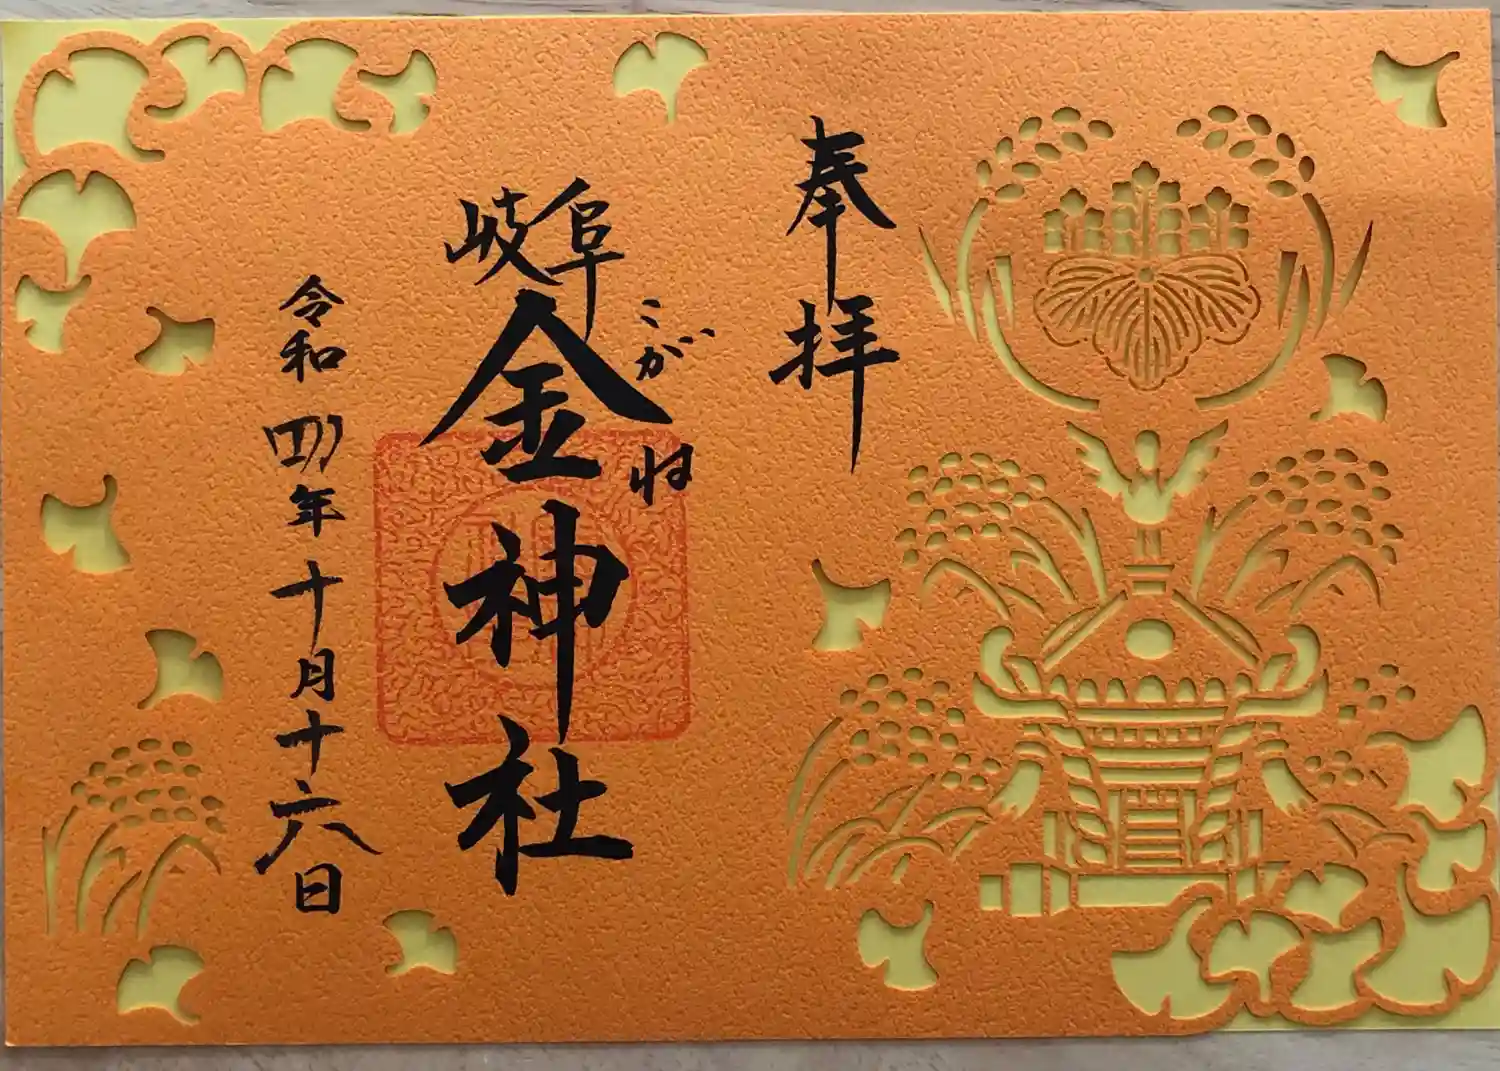 奉拝
こがね
岐阜
金神社
令和四年十月十六日